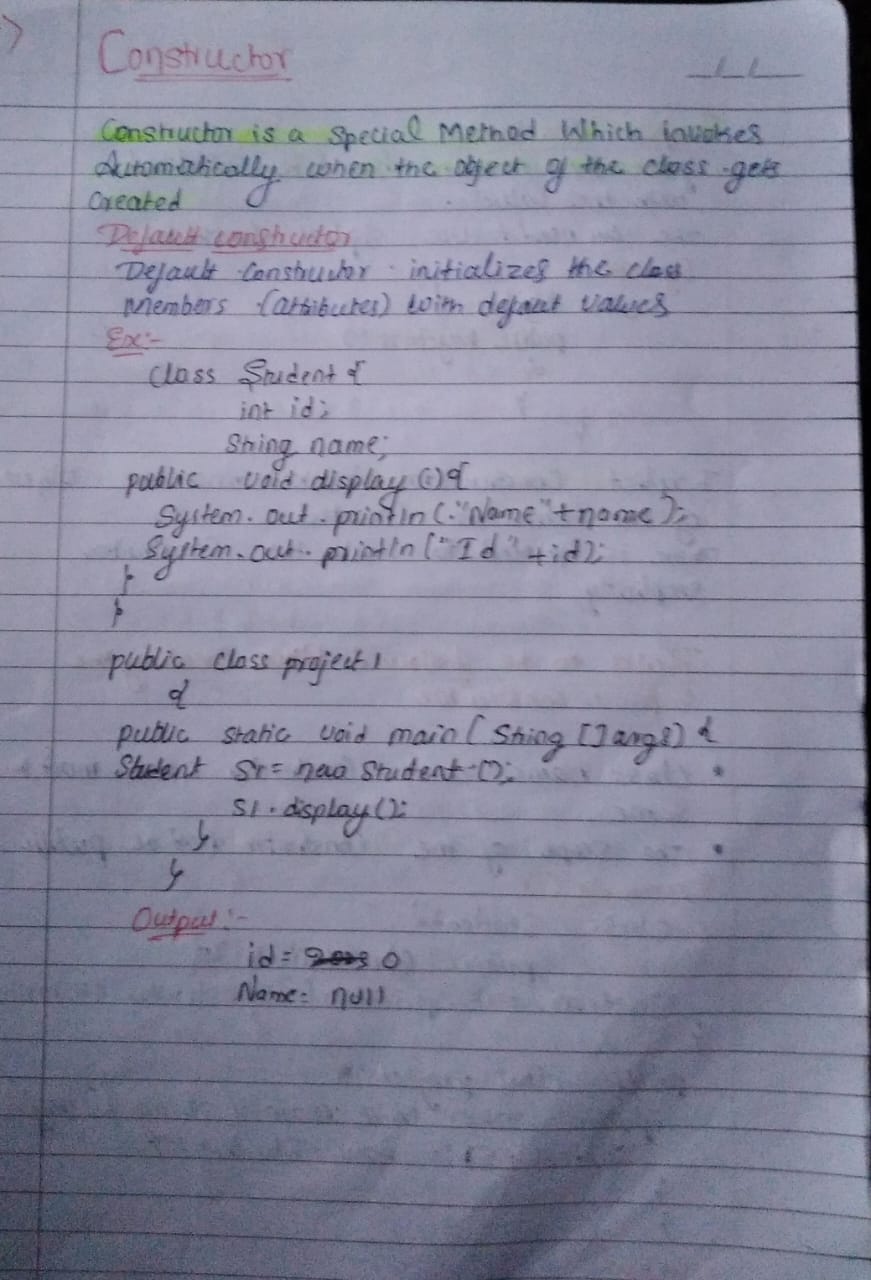 Constructor
Constructor is a special Method Which invokes
Automatically when the object of the class gets
Created
Default constructor
Default Constructor initializes the class
Members (attributes) with default values
Ex:-
class Student {
int id;
String name;
public void display () {
System.out.println("Name"+name);
System.out.println("Id"+id);
}
}
public class project1
{
public static void main (String []args) {
Student S1 = new Student ();
S1.display();
}
}
Output:-
id = 0
Name = null